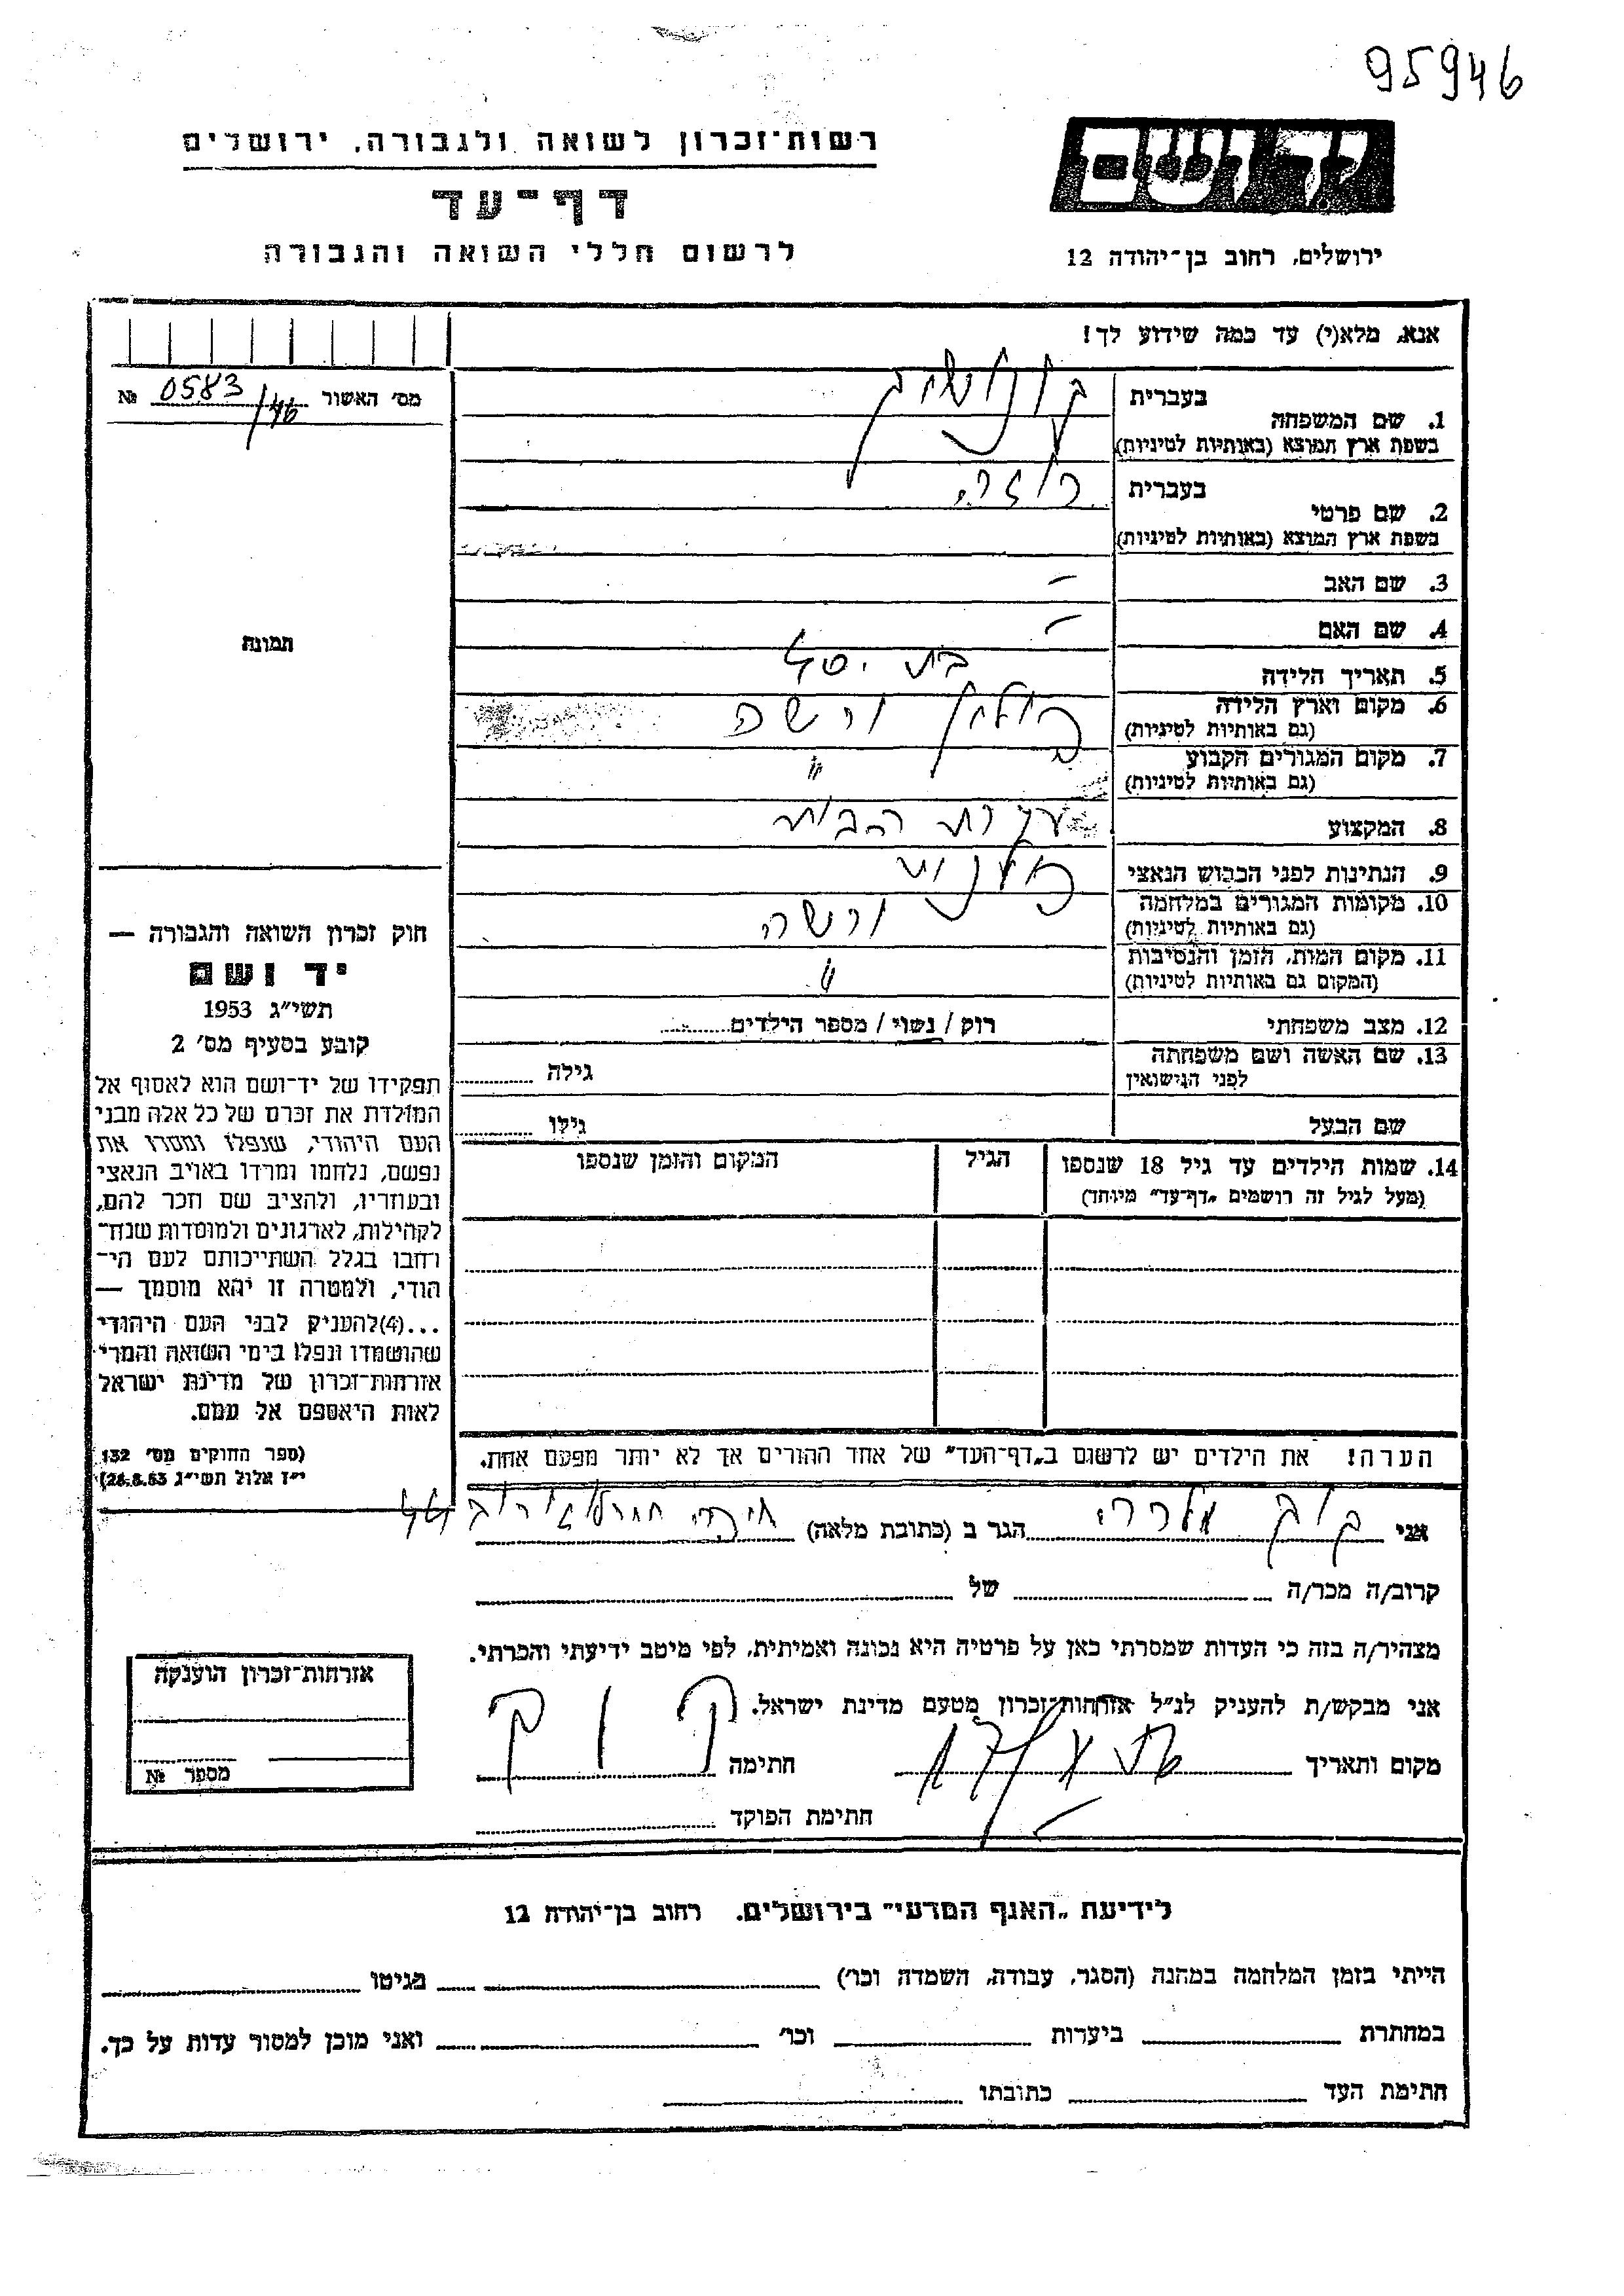 95946
יד ושם
רשות-זכרון לשואה ולגבורה, ירושלים
דף-עד
לרשום חללי השואה והגבורה
ירושלים, רחוב בן-יהודה 12
אנא, מלא(י) עד כמה שידוע לך!
מס׳ האשור 0583/46 №
בעברית
1. שם המשפחה
בשפת ארץ המוצא (באותיות לטיניות)
בעברית רוזה
2. שם פרטי
בשפת ארץ המוצא (באותיות לטיניות)
3. שם האב –
4. שם האם –
5. תאריך הלידה בת
6. מקום וארץ הלידה פולין ורשה
(גם באותיות לטיניות)
7. מקום המגורים הקבוע "
(גם באותיות לטיניות)
8. המקצוע עקרת הבית
9. הנתינות לפני הכבוש הנאצי פולנית
10. מקומות המגורים במלחמה ורשה
(גם באותיות לטיניות)
11. מקום המות, הזמן והנסיבות "
(המקום גם באותיות לטיניות)
12. מצב משפחתי רוק / נשוי / מספר הילדים
13. שם האשה ושם משפחתה גילה
לפני הנישואין
שם הבעל גילו
14. שמות הילדים עד גיל 18 שנספו הגיל המקום והזמן שנספו
(מעל לגיל זה רושמים „דף-עד" מיוחד)
הערה! את הילדים יש לרשום ב„דף-העד" של אחד ההורים אך לא יותר מפעם אחת.
תמונה
חוק זכרון השואה והגבורה —
יד ושם
תשי"ג 1953
קובע בסעיף מס׳ 2
תפקידו של יד-ושם הוא לאסוף אל
המולדת את זכרם של כל אלה מבני
העם היהודי, שנפלו ומסרו את
נפשם, נלחמו ומרדו באויב הנאצי
ובעוזריו, ולהציב שם וזכר להם,
לקהילות, לארגונים ולמוסדות שנח-
רחבו בגלל השתייכותם לעם הי-
הודי, ולמטרה זו יהא מוסמך —
...(4)להעניק לבני העם היהודי
שהושמדו ונפלו בימי השואה והמרי
אזרחות-זכרון של מדינת ישראל
לאות היאספם אל עמם.
(ספר החוקים מס׳ 132
י"ז אלול תשי"ג 28.8.53)
אני הגר ב (כתובת מלאה) 44
קרוב/ה מכר/ה של
מצהיר/ה בזה כי העדות שמסרתי כאן על פרטיה היא נכונה ואמיתית, לפי מיטב ידיעתי והכרתי.
אני מבקש/ת להעניק לנ"ל אזרחות-זכרון מטעם מדינת ישראל.
מקום ותאריך חתימה
חתימת הפוקד
אזרחות-זכרון הוענקה
מספר №
לידיעת „האגף המדעי" בירושלים. רחוב בן-יהודה 12
הייתי בזמן המלחמה במחנה (הסגר, עבודה, השמדה וכו׳) בגיטו
במחתרת ביערות וכו׳ ואני מוכן למסור עדות על כך.
חתימת העד כתובתו